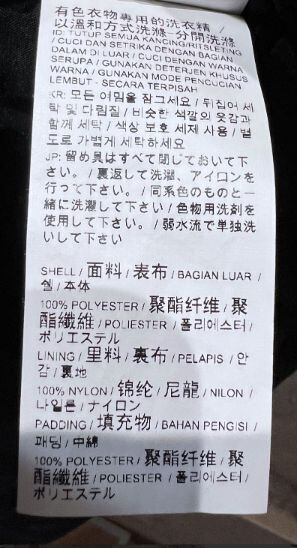 有色衣物專用的洗衣精
以溫和方式洗滌-分開洗滌
ID: TUTUP SEMUA KANCING/RITSLETING
/ CUCI DAN SETRIKA DENGAN BAGIAN
DALAM DI LUAR / CUCI DENGAN WARNA
SERUPA / GUNAKAN DETERJEN KHUSUS
WARNA / GUNAKAN MODE PENGUCIAN
LEMBUT - SECARA TERPISAH
KR: 모든 여밈을 잠그세요 / 뒤집어 세
탁 및 다림질 / 비슷한 색깔의 옷감과
함께 세탁 / 색상 보호 세제 사용 / 별
도로 가볍게 세탁하세요
JP: 留め具はすべて閉じておいて下
さい。 / 裏返して洗濯、アイロンを
行って下さい。 / 同系色のものと一
緒に洗濯して下さい / 色物用洗剤を
使用して下さい。 / 弱水流で単独洗
いして下さい
SHELL / 面料 / 表布 / BAGIAN LUAR /
쉘 / 本体
100% POLYESTER / 聚酯纤维 / 聚
酯纖維 / POLIESTER / 폴리에스터 /
ポリエステル
LINING / 里料 / 裏布 / PELAPIS / 안
감 / 裏地
100% NYLON / 锦纶 / 尼龍 / NILON /
나일론 / ナイロン
PADDING / 填充物 / BAHAN PENGISI /
패딩 / 中綿
100% POLYESTER / 聚酯纤维 / 聚
酯纖維 / POLIESTER / 폴리에스터 /
ポリエステル